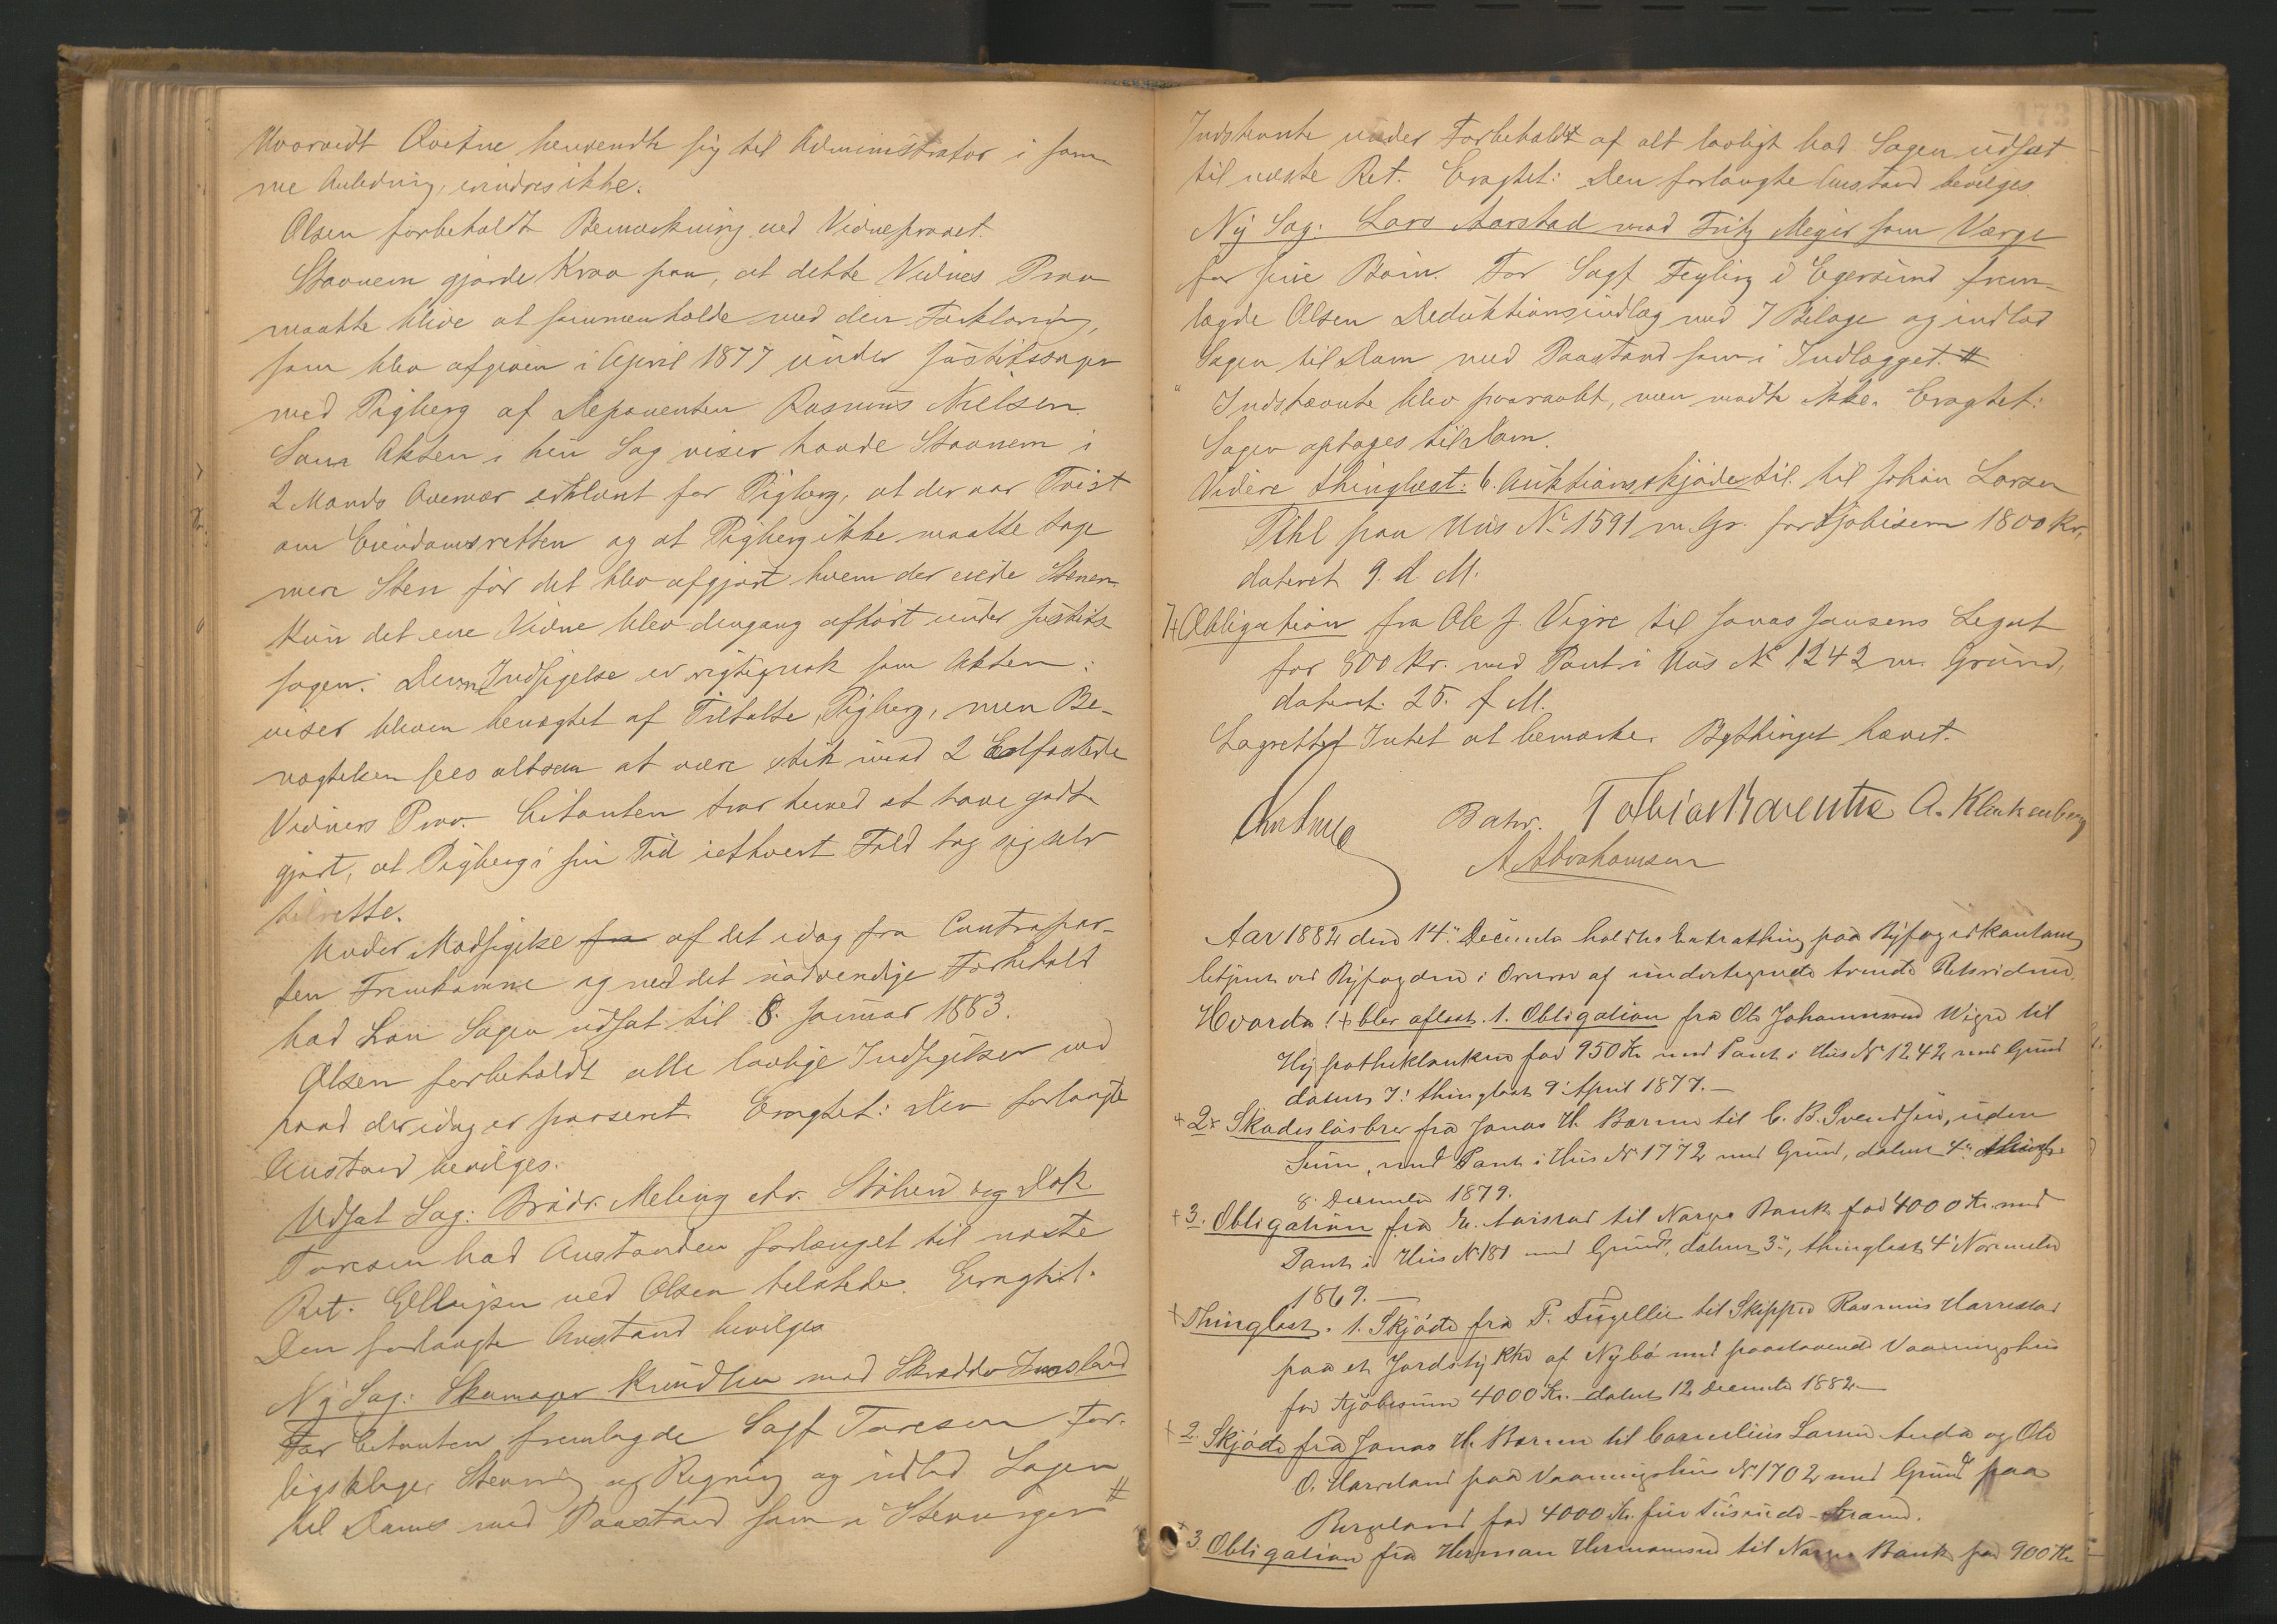 Hvorvidt Qvetne henvendte sig til Administrator i sam-
me Anledning, erindres ikke.
Olsen forbeholdt Bemærkning ved Vidneprovet.
Stavnem gjorde Krav paa, at dette Vidnes Prov
maatte blive at sammenholde med den Forklaring,
som blev afgiven i April 1877 under Justitssagen
mod Pigberg af Deponenten Rasmus Nielsen.
Som Akten i hin Sag viser havde Stavnem i
2 Mænds Overvær erklært for Pigberg, at der var Tvist
om Eiendomsretten og at Pigberg ikke maatte tage
mere Sten før det blev afgjort hvem der eiede Stenen
Kun det ene Vidne blev dengang afhørt under Justits
sagen. Denne Indsigelse er rigtignok som Akten
viser bleven benægtet af Tiltalte, Pigberg, men Be-
nægtelsen sees altsaa at være stik imod 2 Edfæstede
Vidners Prov. Citanten tror hermed at have godt-
gjort, at Pigberg i sin Tid iethvert Fald tog sig selv
tilrette.
Under Modsigelse fra af det idag fra Contrapar-
ten Fremkomne og med det nødvendige Forbehold
bad han Sagen udsat til 8. Januar 1883.
Olsen forbeholdt alle lovlige Indsigelser ved
hvad der idag er passeret. Eragtet: Den forlangte
Anstand bevilges.
Udsat Sag: Brødr. Meling ctr. Støhen og Dok
Toresen bad Anstanden forlænget til næste
Ret. Ellingsen ved Olsen tilstede. Eragtet.
Den forlangte Anstand bevilges
Ny Sag: Skomager Knudsen mod Skrædder Ivesland
For Citanten fremlagde Sagf Toresen For-
ligsklage, Stevning og Regning og indlod Sagen
til Doms med Paastand som i Stevningen #
Indstevnte under Forbeholdt af alt lovligt bad Sagen udsat
til næste Ret. Eragtet: Den forlangte Anstand bevilges
Ny Sag: Lars Aarstad mod Fritz Meyer som Værge
for sine Børn. For Sagf Feyling i Egersund frem-
lagde Olsen Deduktionsindlæg med 7 Bilage og indlod
Sagen til Dom med Paastand som i Indlægget. #
" Indstævnte blev paaraabt, men mødte ikke. Eragtet:
Sagen optages til Dom.
Videre thinglæst: 6. Auktionsskjøde til til Johan Larsen
Pihl paa Hus No 1591 m. Gr. for Kjøbesum 1800 Kr,
dateret 9. d. M.
7+ Obligation fra Ole J. Vigre til Jonas Jansens Legat
for 800 Kr. med Pant i Hus No 1242 m. Grund,
dateret 25. f M.
Lagrettet Intet at bemærke. Bythinget hævet.
Bahr. Tobias Barentse A. Klinkenberg
A Abrahamsen
Aar 1882 den 14de December holdtes Extrathing paa Byfogedkontoret
betjent ved Byfogden i Overvær af undertegnede trende Retsvidner.
Hvorda: + blev aflæst. 1. Obligation fra Ole Johannesen Wigre til
Hypothekbanken for 950 Kr med Pant i Hus No 1242 med Grund
dateret 7. thinglæst 9 April 1877. —
+ 2. Skadesløsbrev fra Jonas H. Børven til C. B. Svendsen, uden
Sum, med Pant i Hus No 1772 med Grund, dateret 4de thingl.
8. December 1879.
+ 3. Obligation fra til Norges Bank for 4000 Kr. med
Pant i Hus No 181 med Grund, dateret 3de, thinglæst 4de November
1869. —
+ Thinglæst. 1. Skjøde fra F. til Skipper Rasmus Harrestad
paa et Jordstykke af Nybø med paastaaende Vaaningshus
for Kjøbesum 4000 Kr. dateret 12 December 1882 —
+ 2. Skjøde fra Jonas H. Børven til Cornelius Larsen Auda og Ole
O. Harveland paa Vaaningshus No 1702 med Grund paa
Bergeland for 4000 Kr. fire Tusinde Kroner.
+ 3 Obligation fra Herman Hermansen til Norges Bank for 900 Kr